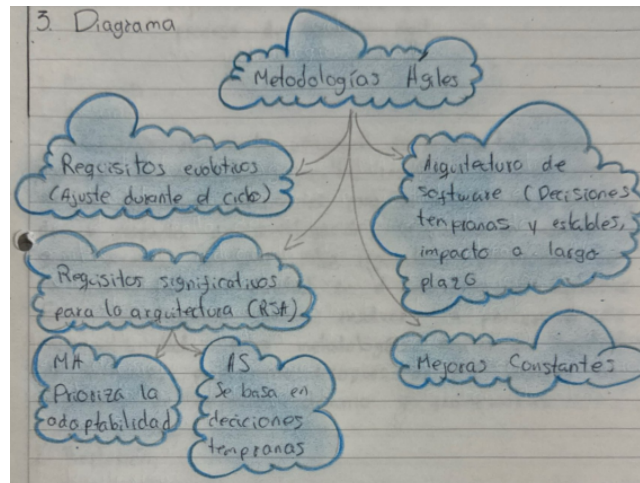 3. Diagrama
Metodologías Agiles
Requisitos evolutivos
(Ajuste durante el ciclo)
Arquitectura de
software (Decisiones
tempranas y estables,
impacto a largo
plazo
Requisitos significativos
para la arquitectura (RSA)
MA
Prioriza la
adaptabilidad
AS
Se basa en
deciciones
tempranas
Mejoras Constantes